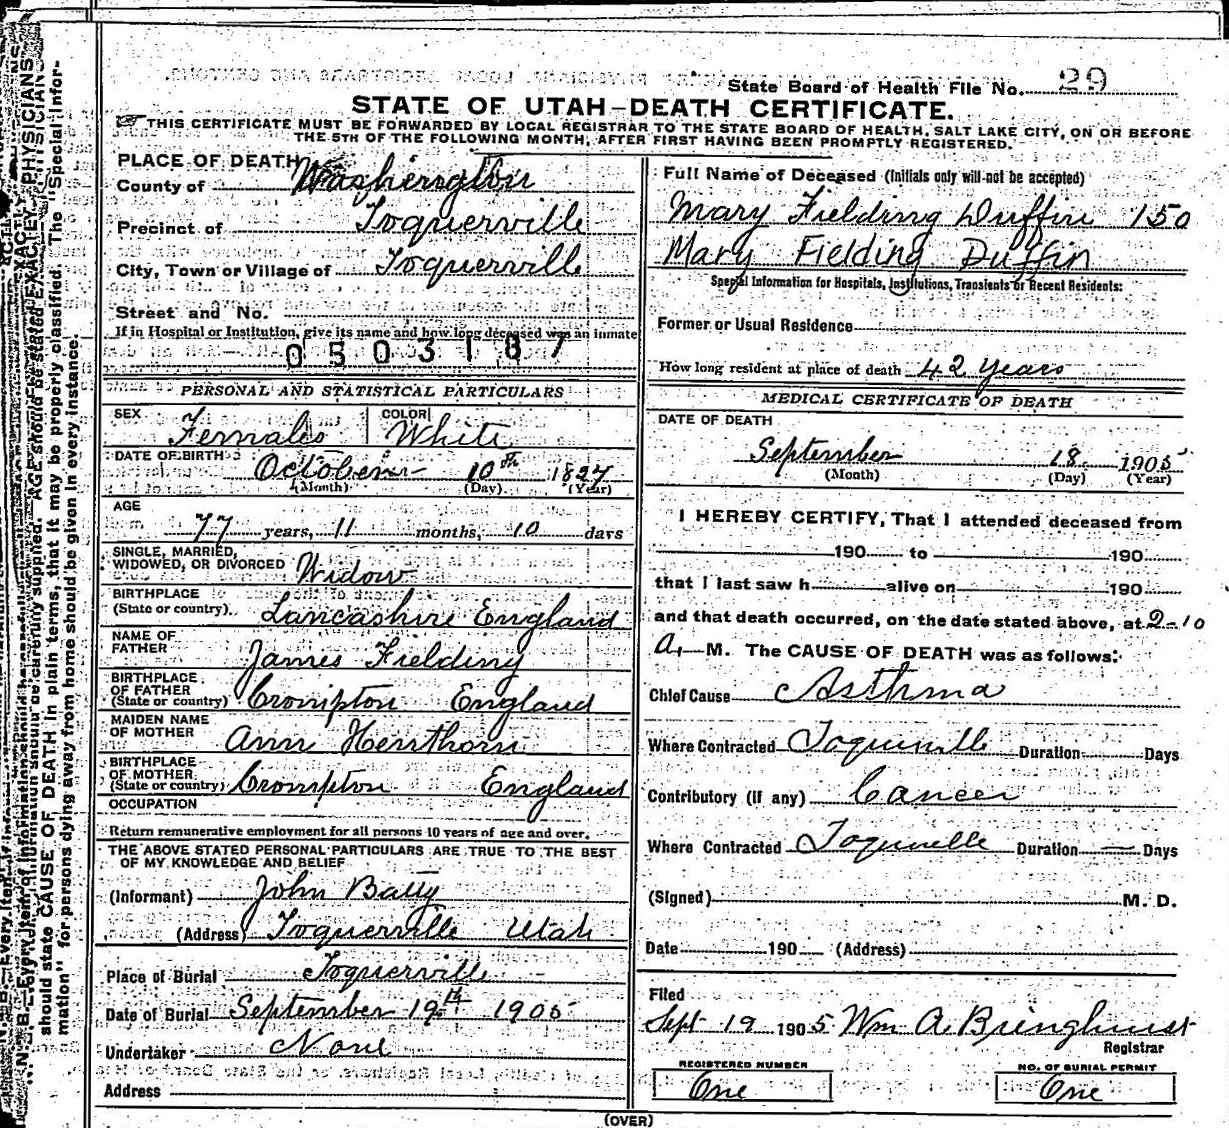 State Board of Health File No. 29
STATE OF UTAH—DEATH CERTIFICATE.
THIS CERTIFICATE MUST BE FORWARDED BY LOCAL REGISTRAR TO THE STATE BOARD OF HEALTH, SALT LAKE CITY, ON OR BEFORE
THE 5TH OF THE FOLLOWING MONTH, AFTER FIRST HAVING BEEN PROMPTLY REGISTERED.
PLACE OF DEATH
County of Washington
Precinct of Toquerville
City, Town or Village of Toquerville
Street and No.
If in Hospital or Institution, give its name and how long deceased was an inmate
0503187
PERSONAL AND STATISTICAL PARTICULARS
SEX Female COLOR White
DATE OF BIRTH October 10th 1827
(Month) (Day) (Year)
AGE
77 years, 11 months, 10 days
SINGLE, MARRIED,
WIDOWED, OR DIVORCED Widow
BIRTHPLACE
(State or country). Lancashire England
NAME OF
FATHER James Fielding
BIRTHPLACE
OF FATHER
(State or country) Crompton England
MAIDEN NAME
OF MOTHER Ann Henthorn
BIRTHPLACE
OF MOTHER
(State or country) Crompton England
OCCUPATION
Return remunerative employment for all persons 10 years of age and over.
THE ABOVE STATED PERSONAL PARTICULARS ARE TRUE TO THE BEST
OF MY KNOWLEDGE AND BELIEF
(Informant) John Batty
(Address) Toquerville Utah
Place of Burial Toquerville
Date of Burial September 19th 1905
Undertaker None
Address
Full Name of Deceased (Initials only will not be accepted)
Mary Fielding Duffin 150
Mary Fielding Duffin
Special Information for Hospitals, Institutions, Transients or Recent Residents:
Former or Usual Residence
How long resident at place of death 42 Years
MEDICAL CERTIFICATE OF DEATH
DATE OF DEATH
September 18 1905
(Month) (Day) (Year)
I HEREBY CERTIFY, That I attended deceased from
190 to 190
that I last saw h alive on 190
and that death occurred, on the date stated above, at 2-10
A. M. The CAUSE OF DEATH was as follows:
Chief Cause Asthma
Where Contracted Toquerville Duration Days
Contributory (if any) Cancer
Where Contracted Toquerville Duration — Days
(Signed) M. D.
Date 190 (Address)
Filed
Sept 19 1905 Wm A. Bringhurst
Registrar
REGISTERED NUMBER
One
NO. OF BURIAL PERMIT
One
(OVER)
should state CAUSE OF DEATH in plain terms, that it may be properly classified. The "Special Infor-
mation" for persons dying away from home should be given in every instance.